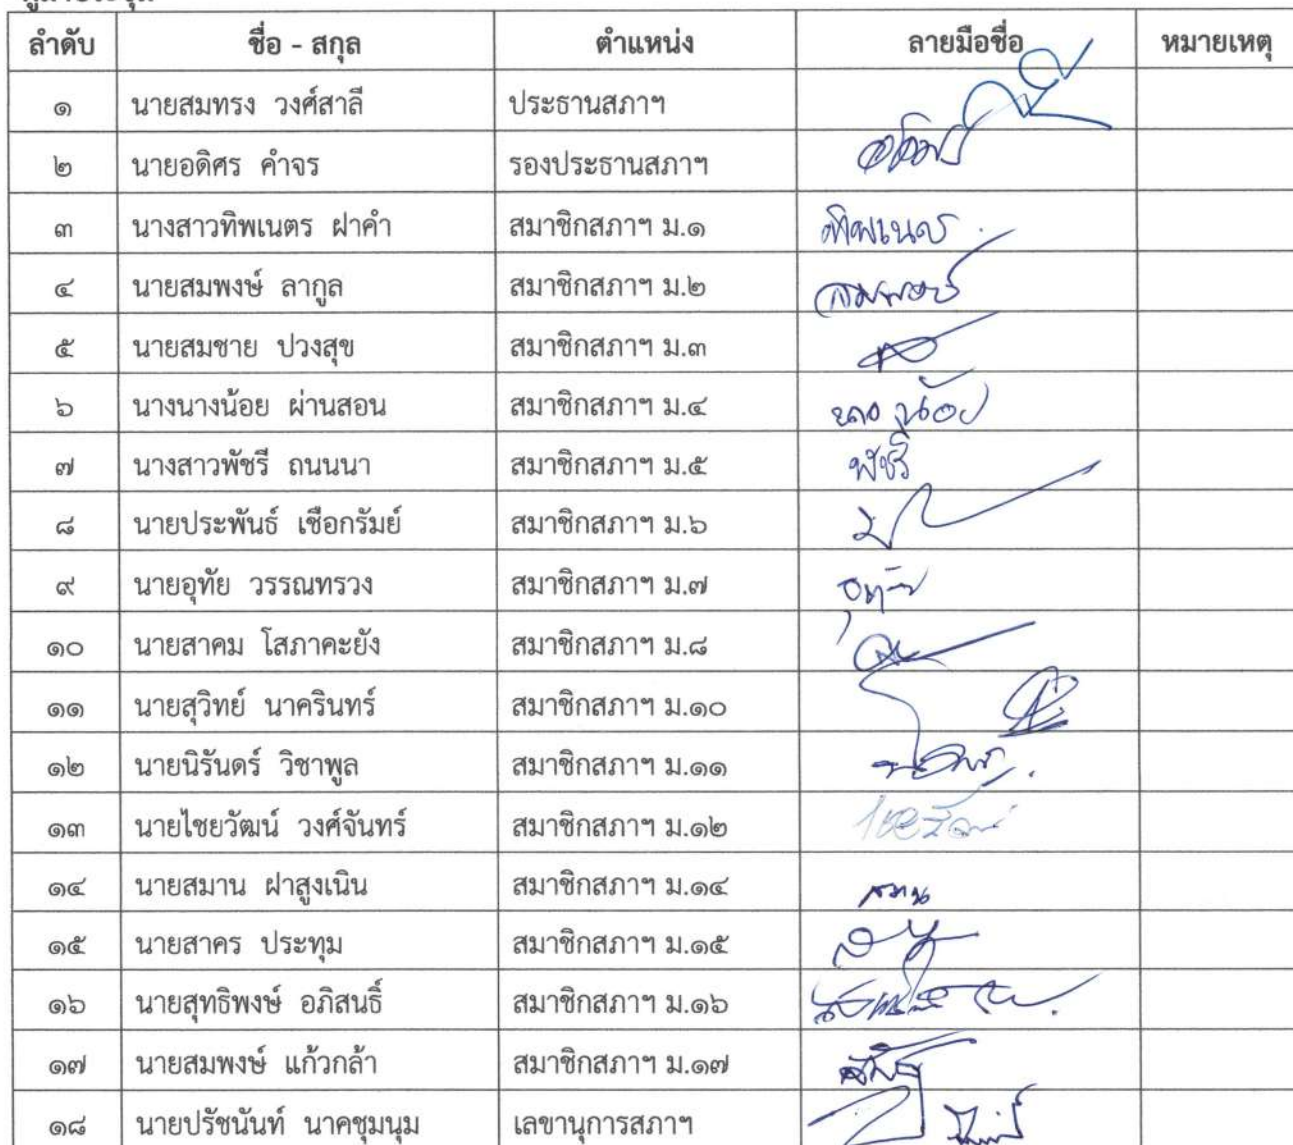 ลำดับ ชื่อ - สกุล ตำแหน่ง ลายมือชื่อ หมายเหตุ
๑ นายสมทรง วงศ์สาลี ประธานสภาฯ
๒ นายอดิศร คำจร รองประธานสภาฯ
๓ นางสาวทิพเนตร ฝาคำ สมาชิกสภาฯ ม.๑ ทิพเนตร
๔ นายสมพงษ์ ลากูล สมาชิกสภาฯ ม.๒ สมพงษ์
๕ นายสมชาย ปวงสุข สมาชิกสภาฯ ม.๓
๖ นางนางน้อย ผ่านสอน สมาชิกสภาฯ ม.๔ นาง น้อย
๗ นางสาวพัชรี ถนนนา สมาชิกสภาฯ ม.๕ พัชรี
๘ นายประพันธ์ เชือกรัมย์ สมาชิกสภาฯ ม.๖
๙ นายอุทัย วรรณทรวง สมาชิกสภาฯ ม.๗ อุทัย
๑๐ นายสาคม โสภาคะยัง สมาชิกสภาฯ ม.๘
๑๑ นายสุวิทย์ นาครินทร์ สมาชิกสภาฯ ม.๑๐
๑๒ นายนิรันดร์ วิชาพูล สมาชิกสภาฯ ม.๑๑
๑๓ นายไชยวัฒน์ วงศ์จันทร์ สมาชิกสภาฯ ม.๑๒
๑๔ นายสมาน ฝาสูงเนิน สมาชิกสภาฯ ม.๑๔ สมาน
๑๕ นายสาคร ประทุม สมาชิกสภาฯ ม.๑๕
๑๖ นายสุทธิพงษ์ อภิสนธิ์ สมาชิกสภาฯ ม.๑๖
๑๗ นายสมพงษ์ แก้วกล้า สมาชิกสภาฯ ม.๑๗
๑๘ นายปรัชนันท์ นาคชุมนุม เลขานุการสภาฯ